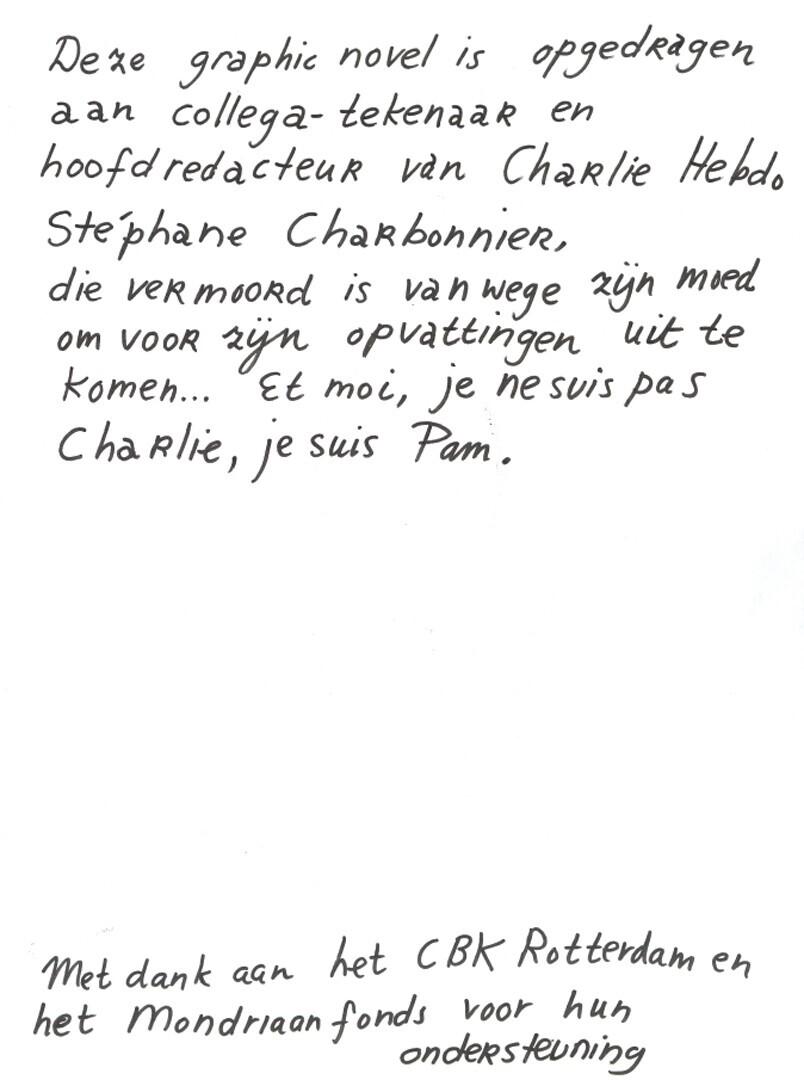 Deze graphic novel is opgedragen
aan collega-tekenaar en
hoofdredacteur van Charlie Hebdo
Stéphane Charbonnier,
die vermoord is vanwege zijn moed
om voor zijn opvattingen uit te
komen... Et moi, je ne suis pas
Charlie, je suis Pam.
Met dank aan het CBK Rotterdam en
het Mondriaan fonds voor hun
ondersteuning